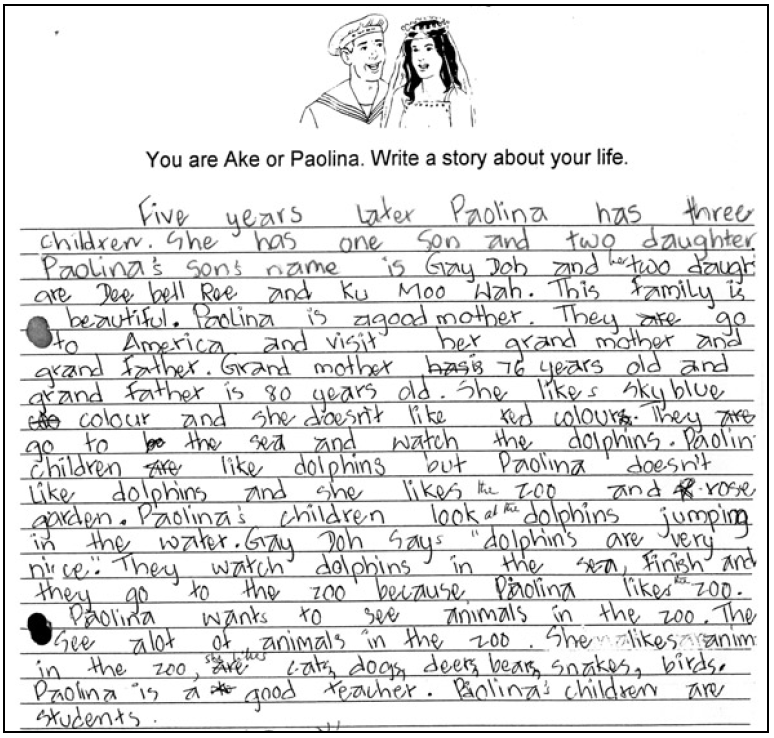 You are Ake or Paolina. Write a story about your life.
Five years later Paolina has three
children. She has one son and two daughter
Paolina's son's name is Gay Doh and her two daugr
are Dee bell Ree and Ku Moo Wah. This family is
beautiful. Paolina is a good mother. They are go
to America and visit her grand mother and
grand father. Grand mother is 76 years old and
grand father is 80 years old. She likes sky blue
colour and she doesn't like red colour. They are
go to the sea and watch the dolphins. Paolin
children are like dolphins but Paolina doesn't
like dolphins and she likes the zoo and rose
garden. Paolina's children look at the dolphins jumping
in the water. Gay Doh says "dolphins are very
nice". They watch dolphins in the sea, finish and
they go to the zoo because Paolina likes the zoo.
Paolina wants to see animals in the zoo. The
see alot of animals in the zoo. She likes anim
in the zoo, she likes cats, dogs, deers, bears, snakes, birds.
Paolina is a good teacher. Paolina's children are
students.